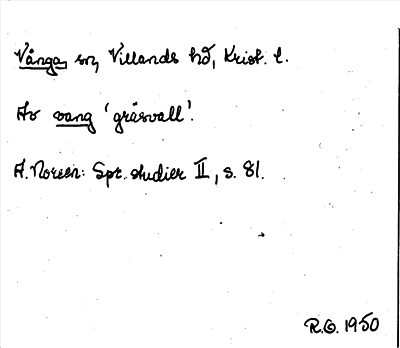 Vånga, sn, Villands hd, Krist. l.
Av vang 'gräsvall'.
A. Noreen: Spr. studier II, s. 81.
R.O. 1950